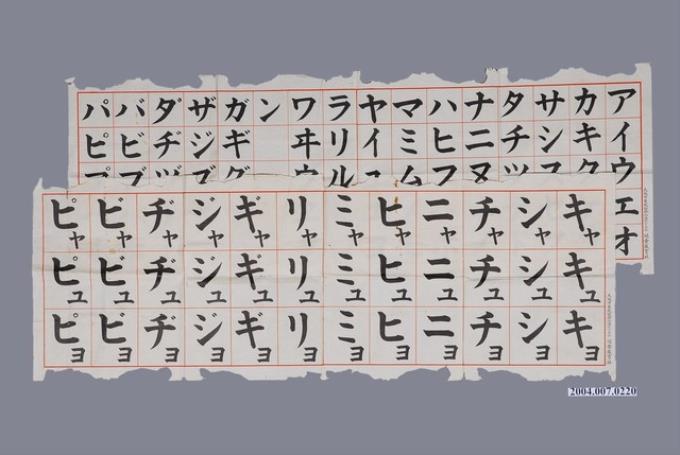 アイウエオ
カキク
サシス
タチツ
ナニヌ
ハヒフ
マミム
ヤイユ
ラリル
ワヰウ
ン
ガギグ
ザジズ
ダヂヅ
バビブ
パピプ
キャキュキョ
シャシュショ
チャチュチョ
ニャニュニョ
ヒャヒュヒョ
ミャミュミョ
リャリュリョ
ギャギュギョ
ジャジュジョ
ヂャヂュヂョ
ビャビュビョ
ピャピュピョ
2004.007.0220